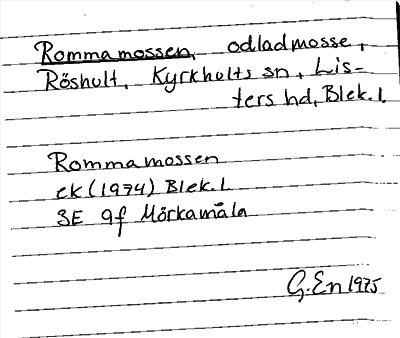 Rommamossen, odladmosse,
Röshult, Kyrkhults sn, Lis-
ters hd, Blek. l.
Rommamossen
ek (1974) Blek. l
3E 9f Mörkamåla
G. En 1975